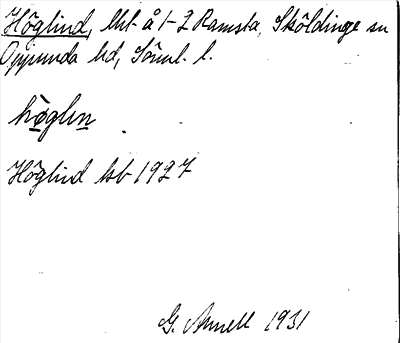 Höglind, lht å 1-2 Ramsta, Sköldinge sn
Oppunda hd, Söml. l.
höglin
Höglind hsb 1927
G. Annell 1931